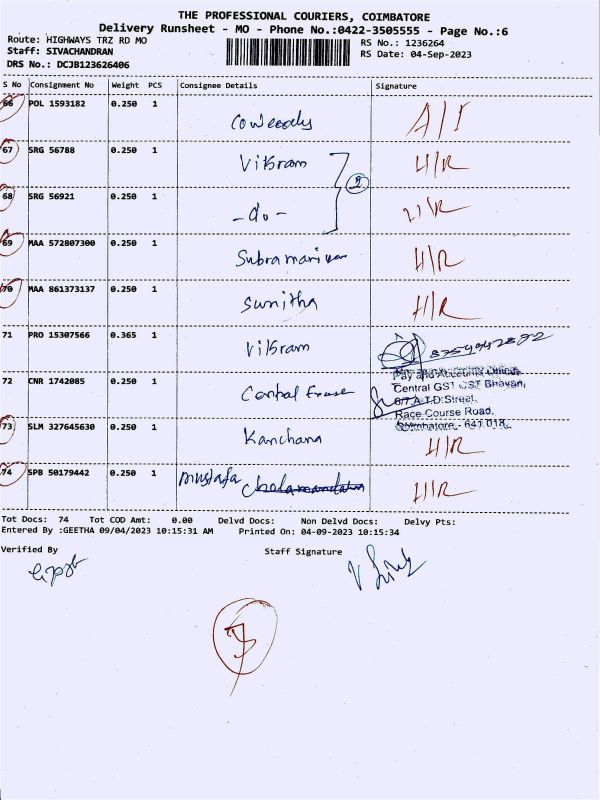 THE PROFESSIONAL COURIERS, COIMBATORE
Delivery Runsheet - MO - Phone No.:0422-3505555 - Page No.:6
Route: HIGHWAYS TRZ RD MO
RS No.: 1236264
Staff: SIVACHANDRAN
RS Date: 04-Sep-2023
DRS No.: DCJB123626406
S No Consignment No Weight PCS Consignee Details Signature
66 POL 1593182 0.250 1
67 SRG 56788 0.250 1 Vikram H/R
2
68 SRG 56921 0.250 1 -do- H/R
69 MAA 572807300 0.250 1 H/R
70 MAA 861373137 0.250 1 Sunitha H/R
71 PRO 15307566 0.365 1 Vikram
72 CNR 1742085 0.250 1
Pay and Accounts Office
Central GST CST Bhavan,
6/7 A.T.D.Street,
Race Course Road,
Coimbatore - 641 018.
73 SLM 327645630 0.250 1 Kanchana H/R
74 SPB 50179442 0.250 1 Mustafa H/R
Tot Docs: 74 Tot COD Amt: 0.00 Delvd Docs: Non Delvd Docs: Delvy Pts:
Entered By :GEETHA 09/04/2023 10:15:31 AM Printed On: 04-09-2023 10:15:34
Verified By Staff Signature